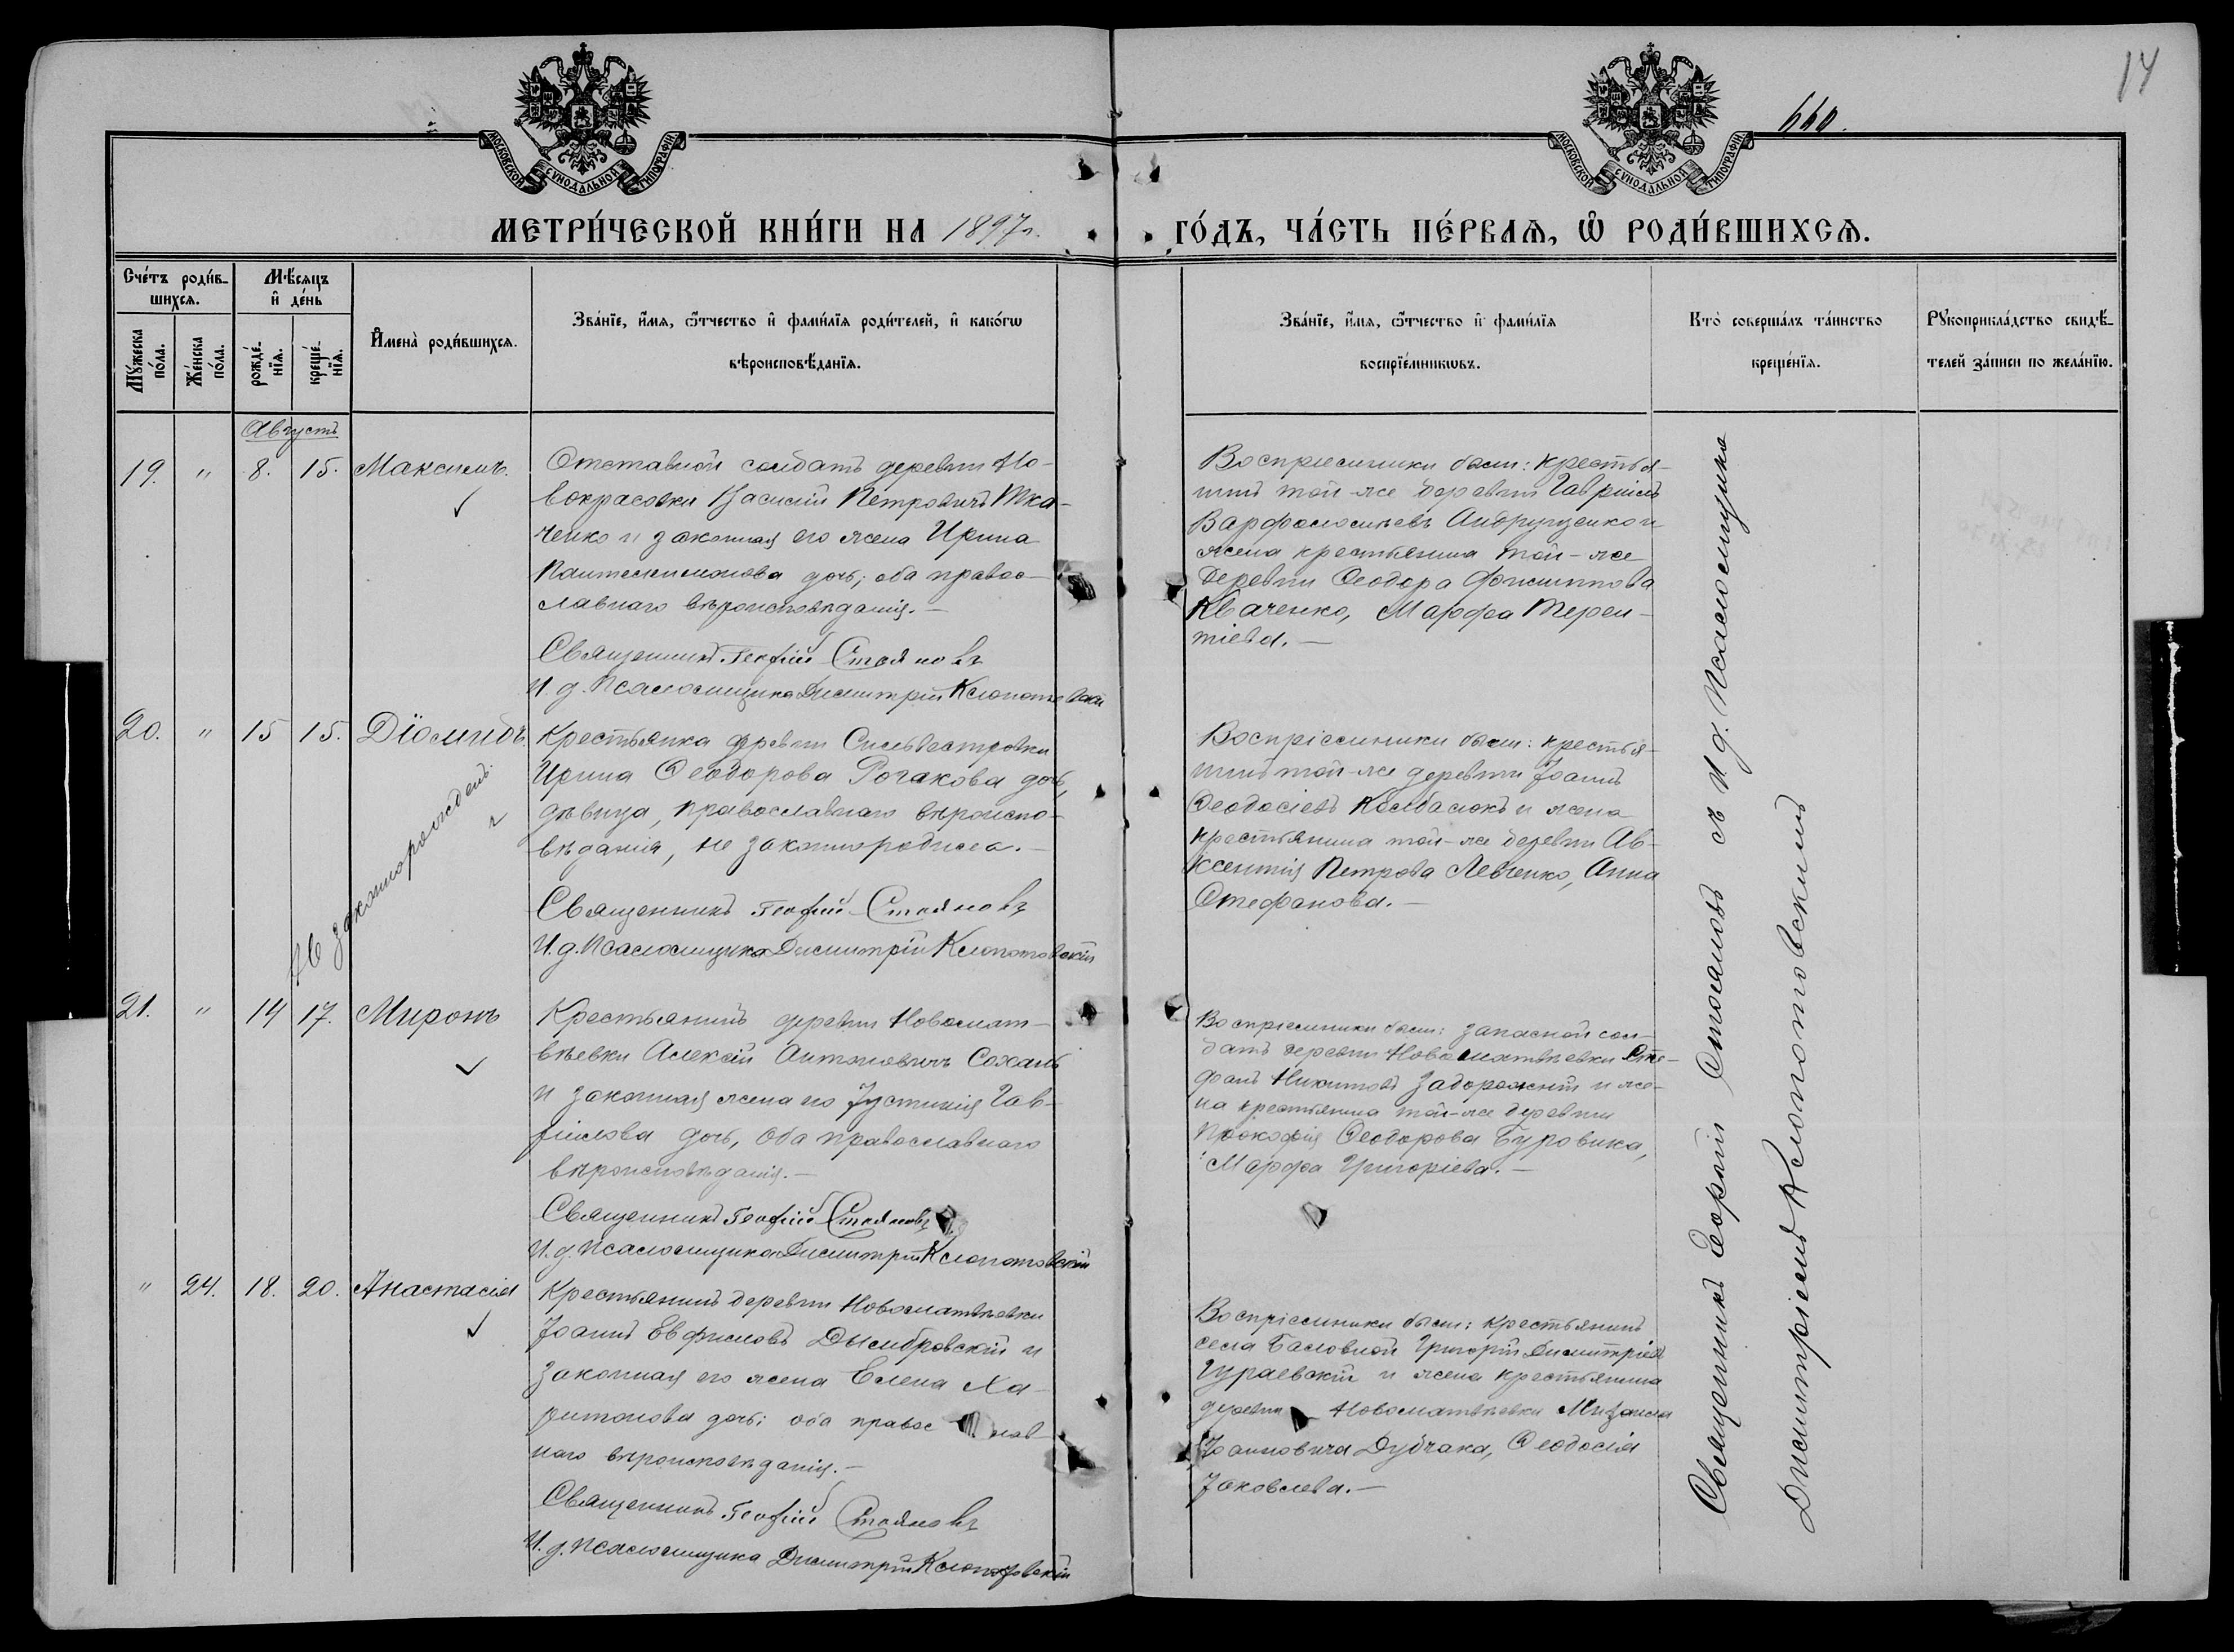 14
660.
МОСКОВСКОЙ СѴНОДАЛЬНОЙ ТИПОГРАФІИ
МОСКОВСКОЙ СѴНОДАЛЬНОЙ ТИПОГРАФІИ
МЕТРИ́ЧЕСКОЙ КНИ́ГИ НА 1897 г. ГО́ДЪ, ЧА́СТЬ ПЕ́РВАѦ, Ѡ҆ РОДИ́ВШИХСѦ.
Сче́тъ роди́в-
шихсѧ.
Мѣ́сѧцъ
и҆ де́нь
Мꙋ́жеска по́ла.
Же́нска по́ла.
рожде́-нїѧ.
креще́-нїѧ.
И҆мена̀ роди́вшихсѧ.
Зва́нїе, и҆́мѧ, ѻ҆́тчество и҆ фами́лїѧ роди́телей, и҆ како́гѡ
вѣроисповѣ́данїѧ.
Зва́нїе, и҆́мѧ, ѻ҆́тчество и҆ фами́лїѧ
воспрїе́мникѡвъ.
Кто̀ соверша́лъ та́инство
креще́нїѧ.
Рꙋкоприкла́дство свидѣ́-
телей за́писи по жела́нїю.
Августъ
19. " 8. 15. Максимъ.
Отставной солдатъ деревни Но-
вокрасовки Василій Петровичъ Тка-
ченко и законная его жена Ирина
Пантелеимонова дочь; оба правос-
лавнаго вѣроисповѣданія.—
Священникъ Георгій Стояновъ
И. д. Псаломщика Димитрій Клопотовскій
Воспріемники были: крестья-
нинъ той-же деревни Гавріилъ
Варфоломѣевъ Андрущенко и
жена крестьянина той-же
деревни Ѳеодора
Кваченко, Марфа Терен-
тіева.—
20. " 15 15. Діомидъ.
Не законорожденъ.
Крестьянка деревни Сильвестровки
Ирина Ѳеодорова Рогакова дочь,
дѣвица, православнаго вѣроиспо-
вѣданія, не законнородила.—
Священникъ Георгій Стояновъ
И. д. Псаломщика Димитрій Клопотовскій
Воспріемники были: крестья-
нинъ той-же деревни Іоаннъ
Ѳеодосіевъ Колбасюкъ и жена
крестьянина той-же деревни Ав-
ксентія Петрова Левченко, Анна
Стефанова.—
21. " 14 17. Миронъ
Крестьянинъ деревни Новомат-
вѣевки Алексій Антоновичъ Сохань
и законная жена его Іустинія Гав-
ріилова дочь, оба православнаго
вѣроисповѣданія.—
Священникъ Георгій Стояновъ
И. д. Псаломщика Димитрій Клопотовскій
Воспріемники были: запасной сол-
датъ деревни Новоматвѣевки Сте-
фанъ Никитовъ Задорожній и же-
на крестьянина той-же деревни
Прокофія Ѳеодорова Буровика,
Марфа Григоріева.—
" 24. 18. 20. Анастасія
Крестьянинъ деревни Новоматвѣевки
Іоаннъ Евфимовъ Дымбровскій и
законная его жена Елена Ха-
ритонова дочь; оба правос лав-
наго вѣроисповѣданія.—
Священникъ Георгій Стояновъ
И. д. Псаломщика Димитрій Клопотовскій
Воспріемники были: крестьянинъ
села Баловной Григорій Димитріев
Гураевскій и жена крестьянина
деревни Новоматвѣевки Мизаила
Іоанновича Дубчака, Ѳеодосія
Іаковлева.—
Священникъ Георгій Стояновъ съ И. д. Псаломщика
Димитріемъ Клопотовскимъ